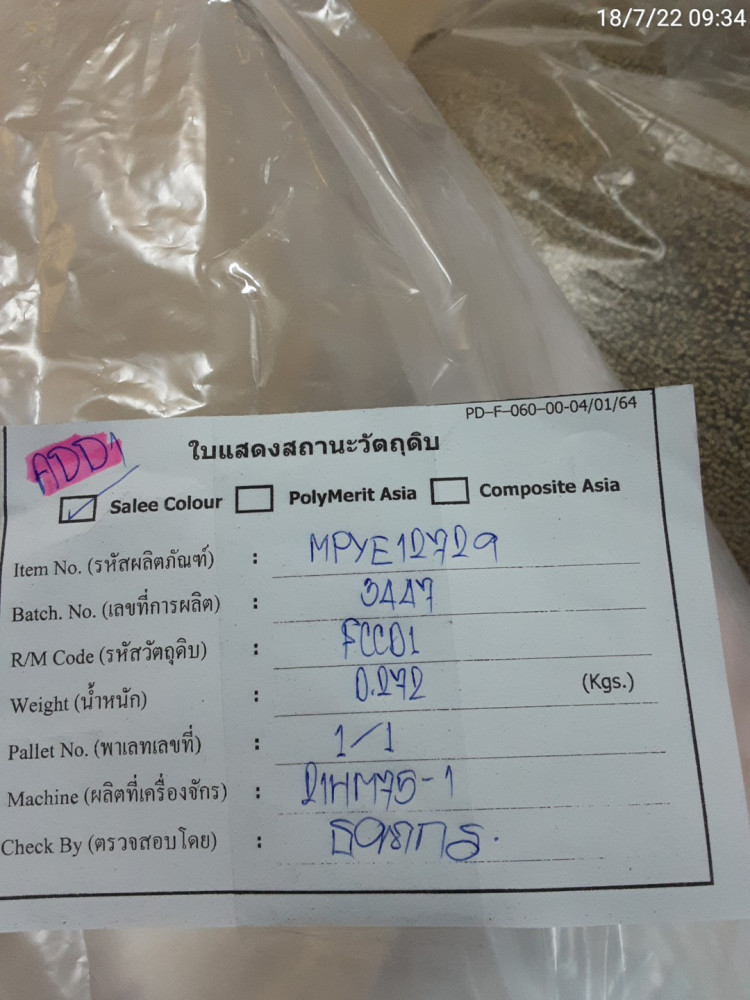 18/7/22 09:34
PD-F-060-00-04/01/64
ADD1
ใบแสดงสถานะวัตถุดิบ
Salee Colour PolyMerit Asia Composite Asia
Item No. (รหัสผลิตภัณฑ์) : MPYE12729
Batch. No. (เลขที่การผลิต) : 3447
R/M Code (รหัสวัตถุดิบ) : FCC01
Weight (น้ำหนัก) : 0.272 (Kgs.)
Pallet No. (พาเลทเลขที่) : 1/1
Machine (ผลิตที่เครื่องจักร) : 21HM75-1
Check By (ตรวจสอบโดย) :